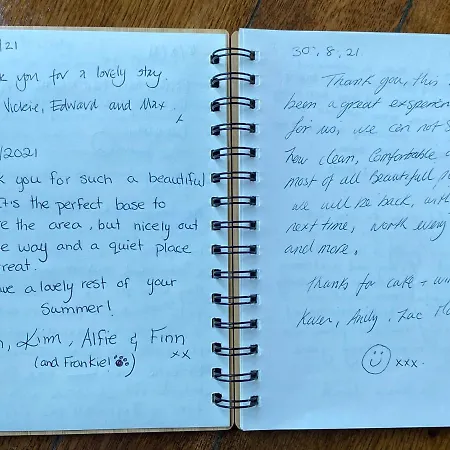 /21
k you for a lovely stay.
Vickere, Edward and Max.
x
/2021
k you for such a beautiful
It is the perfect base to
re the area, but nicely out
e way and a quiet place
reat.
ave a lovely rest of your
Summer!
, Kim, Alfie & Finn
xx
(and Frankie!)
30, 8, 21
Thank you, this
been a great experien
for us, we can not s
how clean, Comfortable
most of all beautiful
we will be back,
next time, worth every
and more.
Thanks for cake + wi
Andy, Zac
xxx.